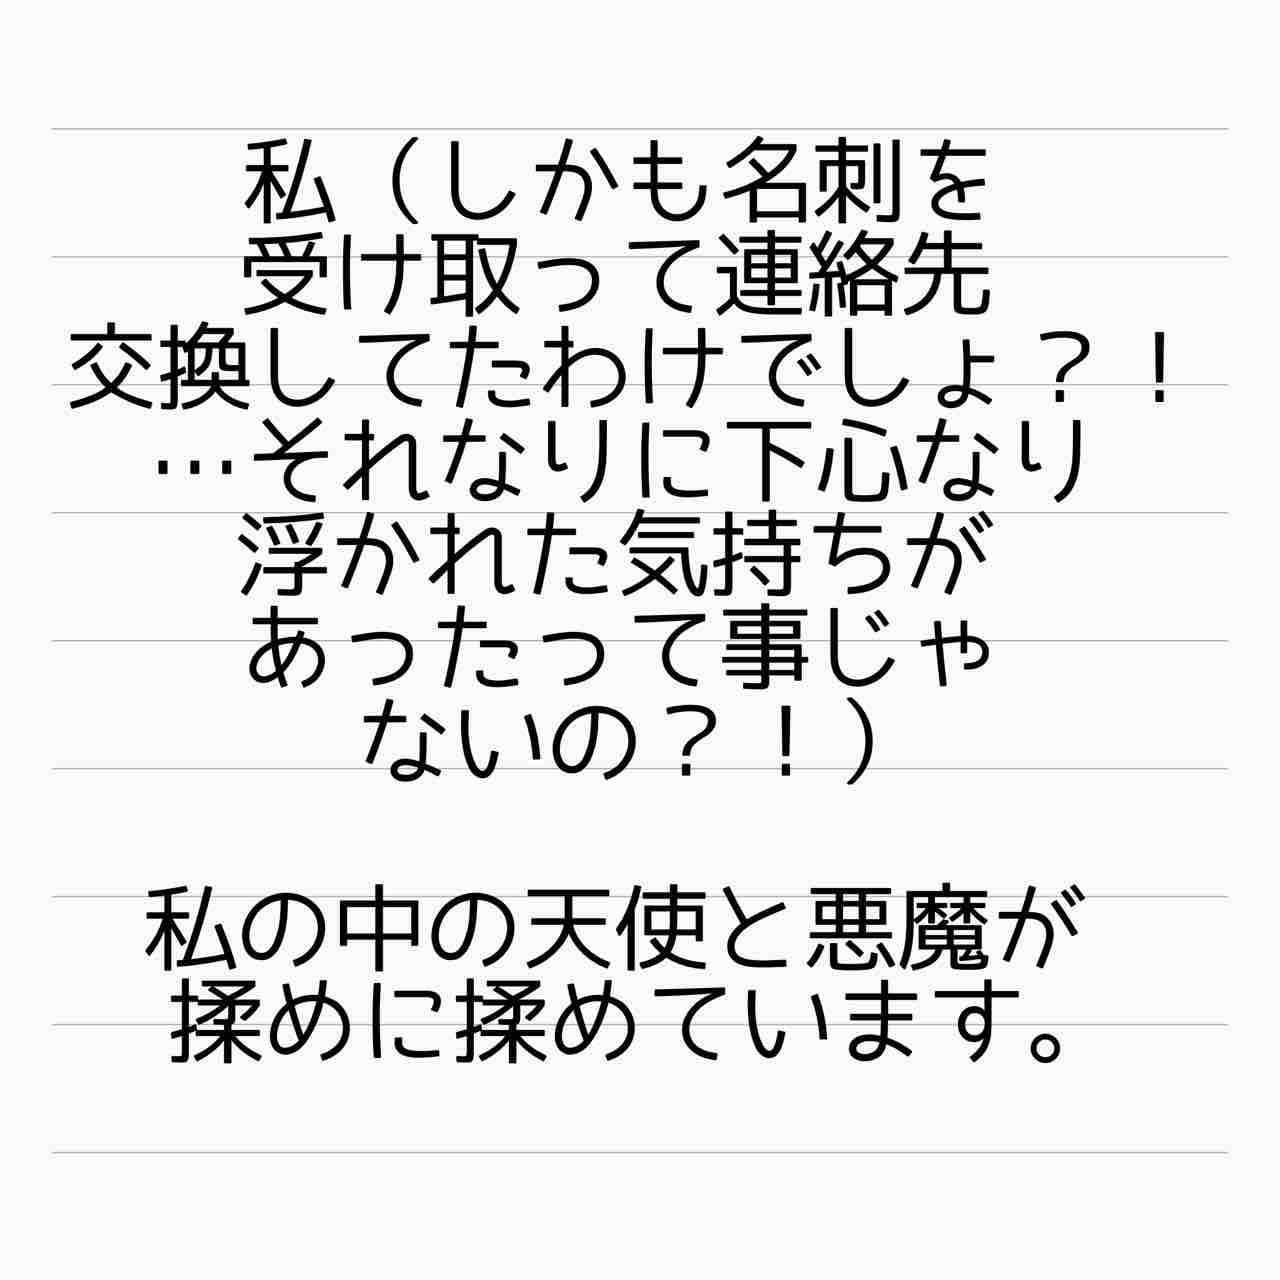 私（しかも名刺を
受け取って連絡先
交換してたわけでしょ？！
…それなりに下心なり
浮かれた気持ちが
あったって事じゃ
ないの？！）
私の中の天使と悪魔が
揉めに揉めています。